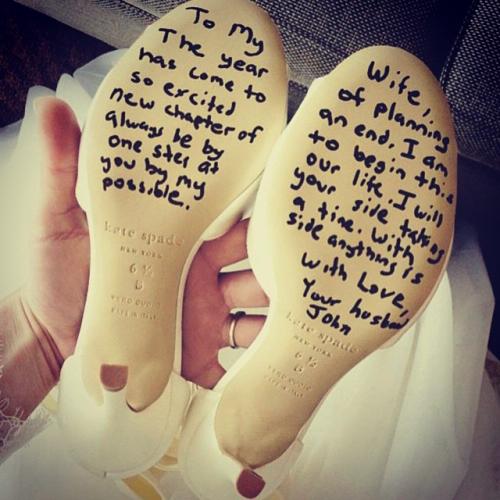 To My Wife,
The year of planning
has come to an end. I am
so excited to begin this
new chapter of our life. I will
always be by your side taking
one step at a time. With
you by my side anything is
possible. With Love,
Your husband
John
kate spade
NEW YORK
6 ½
B
VERO CUOIO
kate spade
NEW YORK
6 ½
B
VERO CUOIO